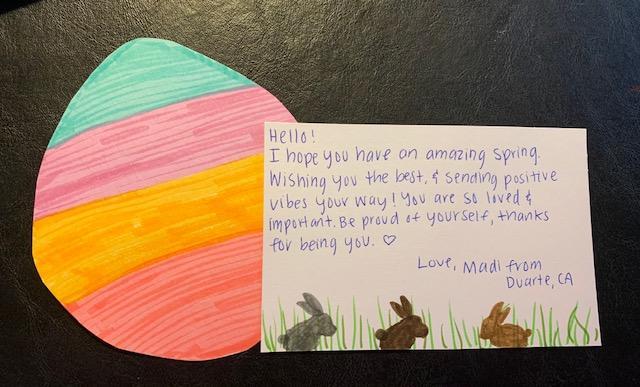 Hello!
I hope you have an amazing spring.
Wishing you the best, & sending positive
vibes your way! You are so loved &
important. Be proud of yourself, thanks
for being you. ♡
Love, Madi from
Duarte, CA